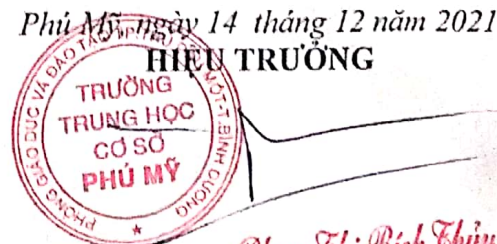 Phú Mỹ, ngày 14 tháng 12 năm 2021
HIỆU TRƯỞNG
PHÒNG GIÁO DỤC VÀ ĐÀO TẠO TP THỦ DẦU MỘT-T.BÌNH DƯƠNG
TRƯỜNG
TRUNG HỌC
CƠ SỞ
PHÚ MỸ
Thị Bích Thủy